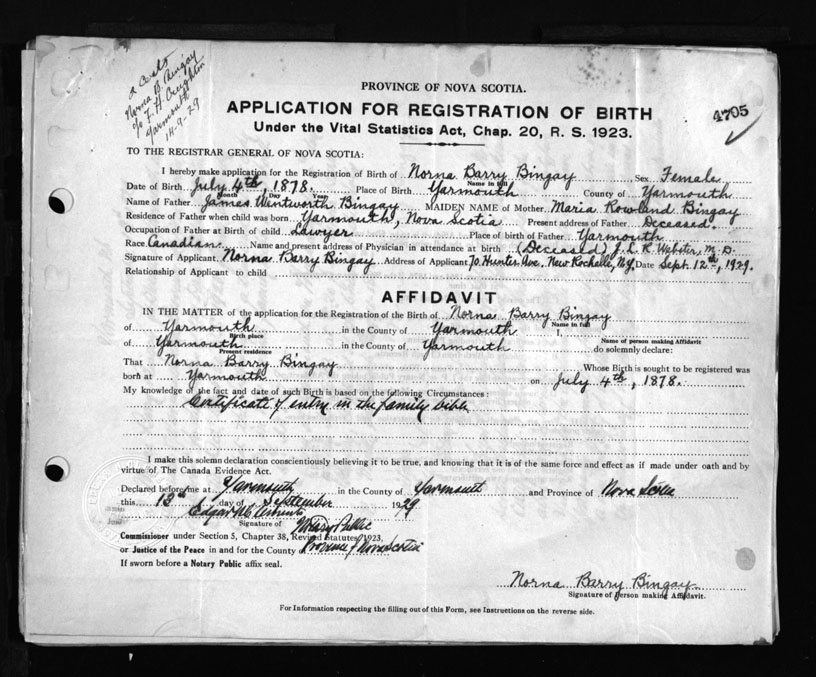 2 Certs
Norna B. Bingay
c/o T. H. Creighton
Yarmouth
14-9-29
PROVINCE OF NOVA SCOTIA.
APPLICATION FOR REGISTRATION OF BIRTH
4705
Under the Vital Statistics Act, Chap. 20, R. S. 1923.
TO THE REGISTRAR GENERAL OF NOVA SCOTIA:
I hereby make application for the Registration of Birth of Norna Barry Bingay Sex Female
Name in full
Date of Birth July 4th, 1878. Place of Birth Yarmouth County of Yarmouth
Month Day
Name of Father James Wentworth Bingay MAIDEN NAME of Mother Maria Rowland Bingay
Residence of Father when child was born Yarmouth, Nova Scotia Present address of Father Deceased.
Occupation of Father at Birth of child Lawyer Place of birth of Father Yarmouth
Race Canadian Name and present address of Physician in attendance at birth (Deceased) J. L. R. Webster, M.D.
Signature of Applicant Norna Barry Bingay Address of Applicant 70 Hunter Ave. New Rochelle, N.Y. Date Sept. 12th, 1929.
Relationship of Applicant to child
AFFIDAVIT
IN THE MATTER of the application for the Registration of the Birth of Norna Barry Bingay
Name in full
of Yarmouth in the County of Yarmouth I,
Birth place Name of person making Affidavit
of Yarmouth in the County of Yarmouth do solemnly declare:
Present residence
That Norna Barry Bingay Whose Birth is sought to be registered was
born at Yarmouth on July 4th, 1878.
My knowledge of the fact and date of such Birth is based on the following Circumstances:
Certificate of entry in the family bible
I make this solemn declaration conscientiously believing it to be true, and knowing that it is of the same force and effect as if made under oath and by
virtue of The Canada Evidence Act.
Declared before me at Yarmouth in the County of Yarmouth and Province of Nova Scotia
this 13th day of September 1929
Edgar H Clements
Signature of Notary Public
Commissioner under Section 5, Chapter 38, Revised Statutes 1923,
or Justice of the Peace in and for the County of Province of Nova Scotia
If sworn before a Notary Public affix seal.
Norna Barry Bingay
Signature of person making Affidavit.
For Information respecting the filling out of this Form, see Instructions on the reverse side.